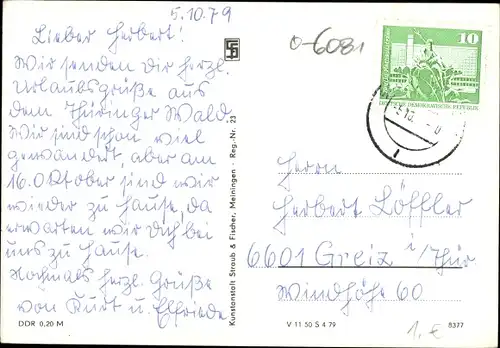 5.10.79
Lieber Herbert!
Wir senden Dir herzl.
Urlaubsgrüße aus
dem Thüringer Wald
Wir sind schon viel
gewandert, aber am
16. Oktober sind wir
wieder zu Hause, da
erwarten wir Dich bei
uns zu Hause.
Nochmals herzl. Grüße
von Kurt u. Elfriede
DDR 0,20 M
Kunstanstalt Straub & Fischer, Meiningen - Reg.-Nr. 23
0-6081
10
DEUTSCHE DEMOKRATISCHE REPUBLIK
Herrn
Herbert Löffler
6601 Greiz i/Thür
Windhöhe 60
V 11 50 S 4 79
1,€
8377